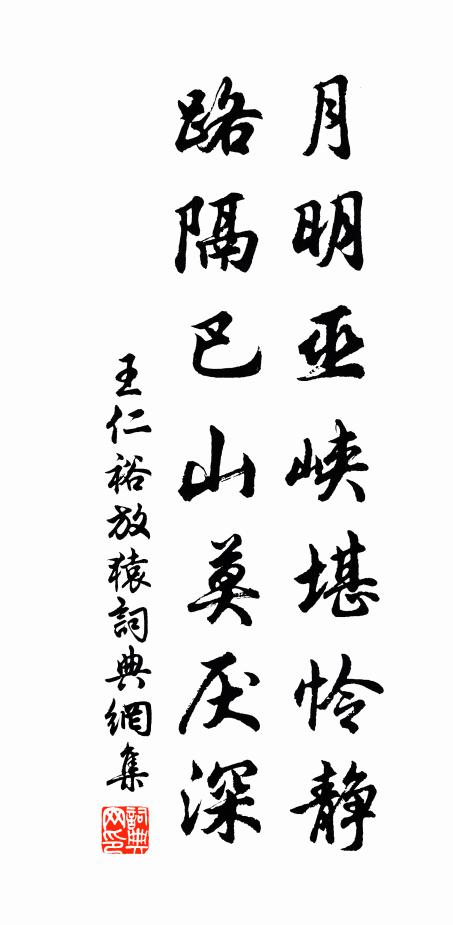 月明巫峡堪怜静
路隔巴山莫厌深
王仁裕放猿詞典網集
詞典网印